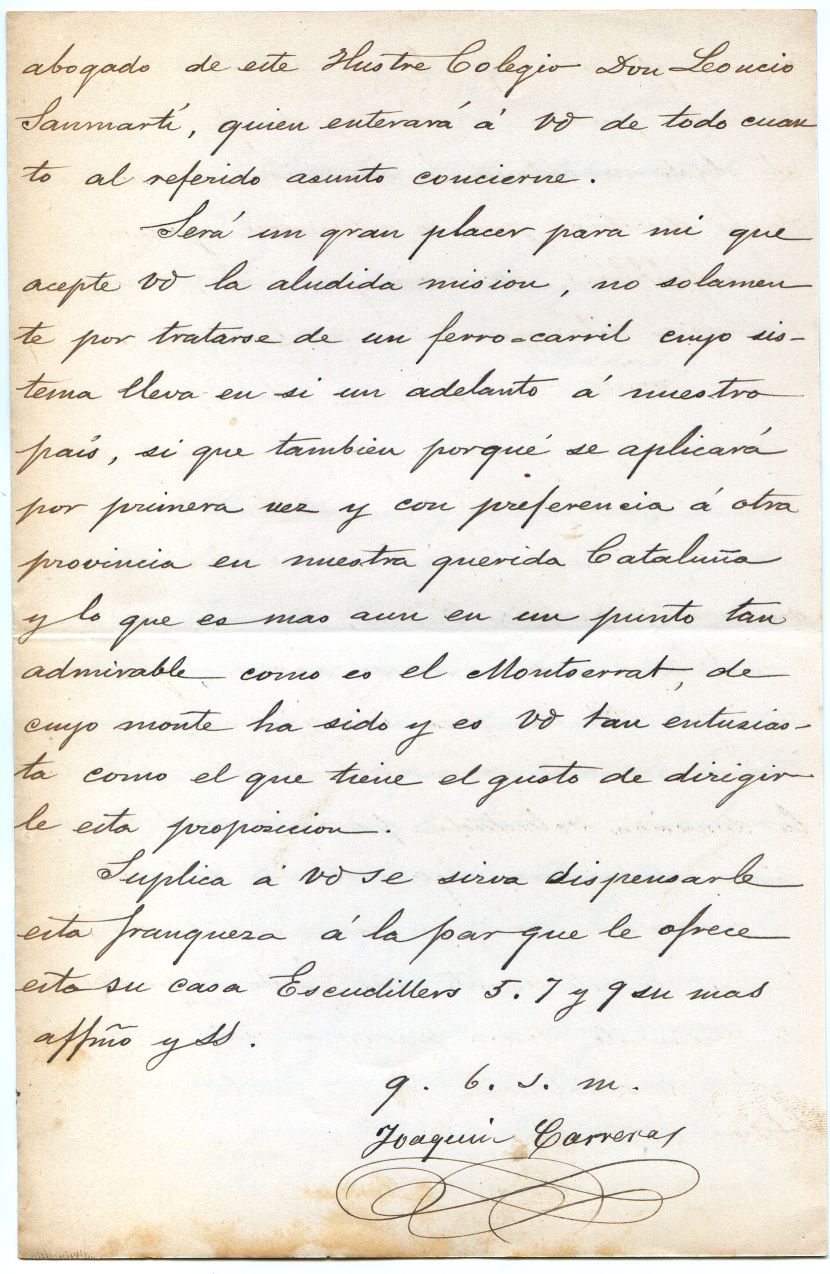 abogado de este Ilustre Colegio Don Leoncio
Sanmartí, quien enterará á Vd de todo cuan
to al referido asunto concierne.
Será un gran placer para mi que
acepte Vd la aludida mision, no solamen
te por tratarse de un ferro=carril cuyo sis-
tema lleva en si un adelanto á nuestro
país, si que tambien porqué se aplicará
por primera vez y con preferencia á otra
provincia en nuestra querida Cataluña
y lo que es mas aun en un punto tan
admirable como es el Montserrat, de
cuyo monte ha sido y es Vd tan entusias-
ta como el que tiene el gusto de dirigir
le esta proposicion.
Suplica á Vd se sirva dispensarle
esta franqueza á la par que le ofrece
esta su casa Escudillers 5. 7 y 9 su mas
affmo y SS.
q. b. s. m.
Joaquin Carreras